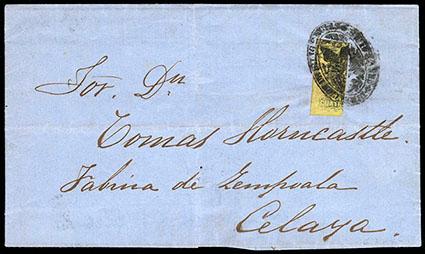 Sor. Dn
Tomas Horncastle.
Fabrica de Zempoala
Celaya.